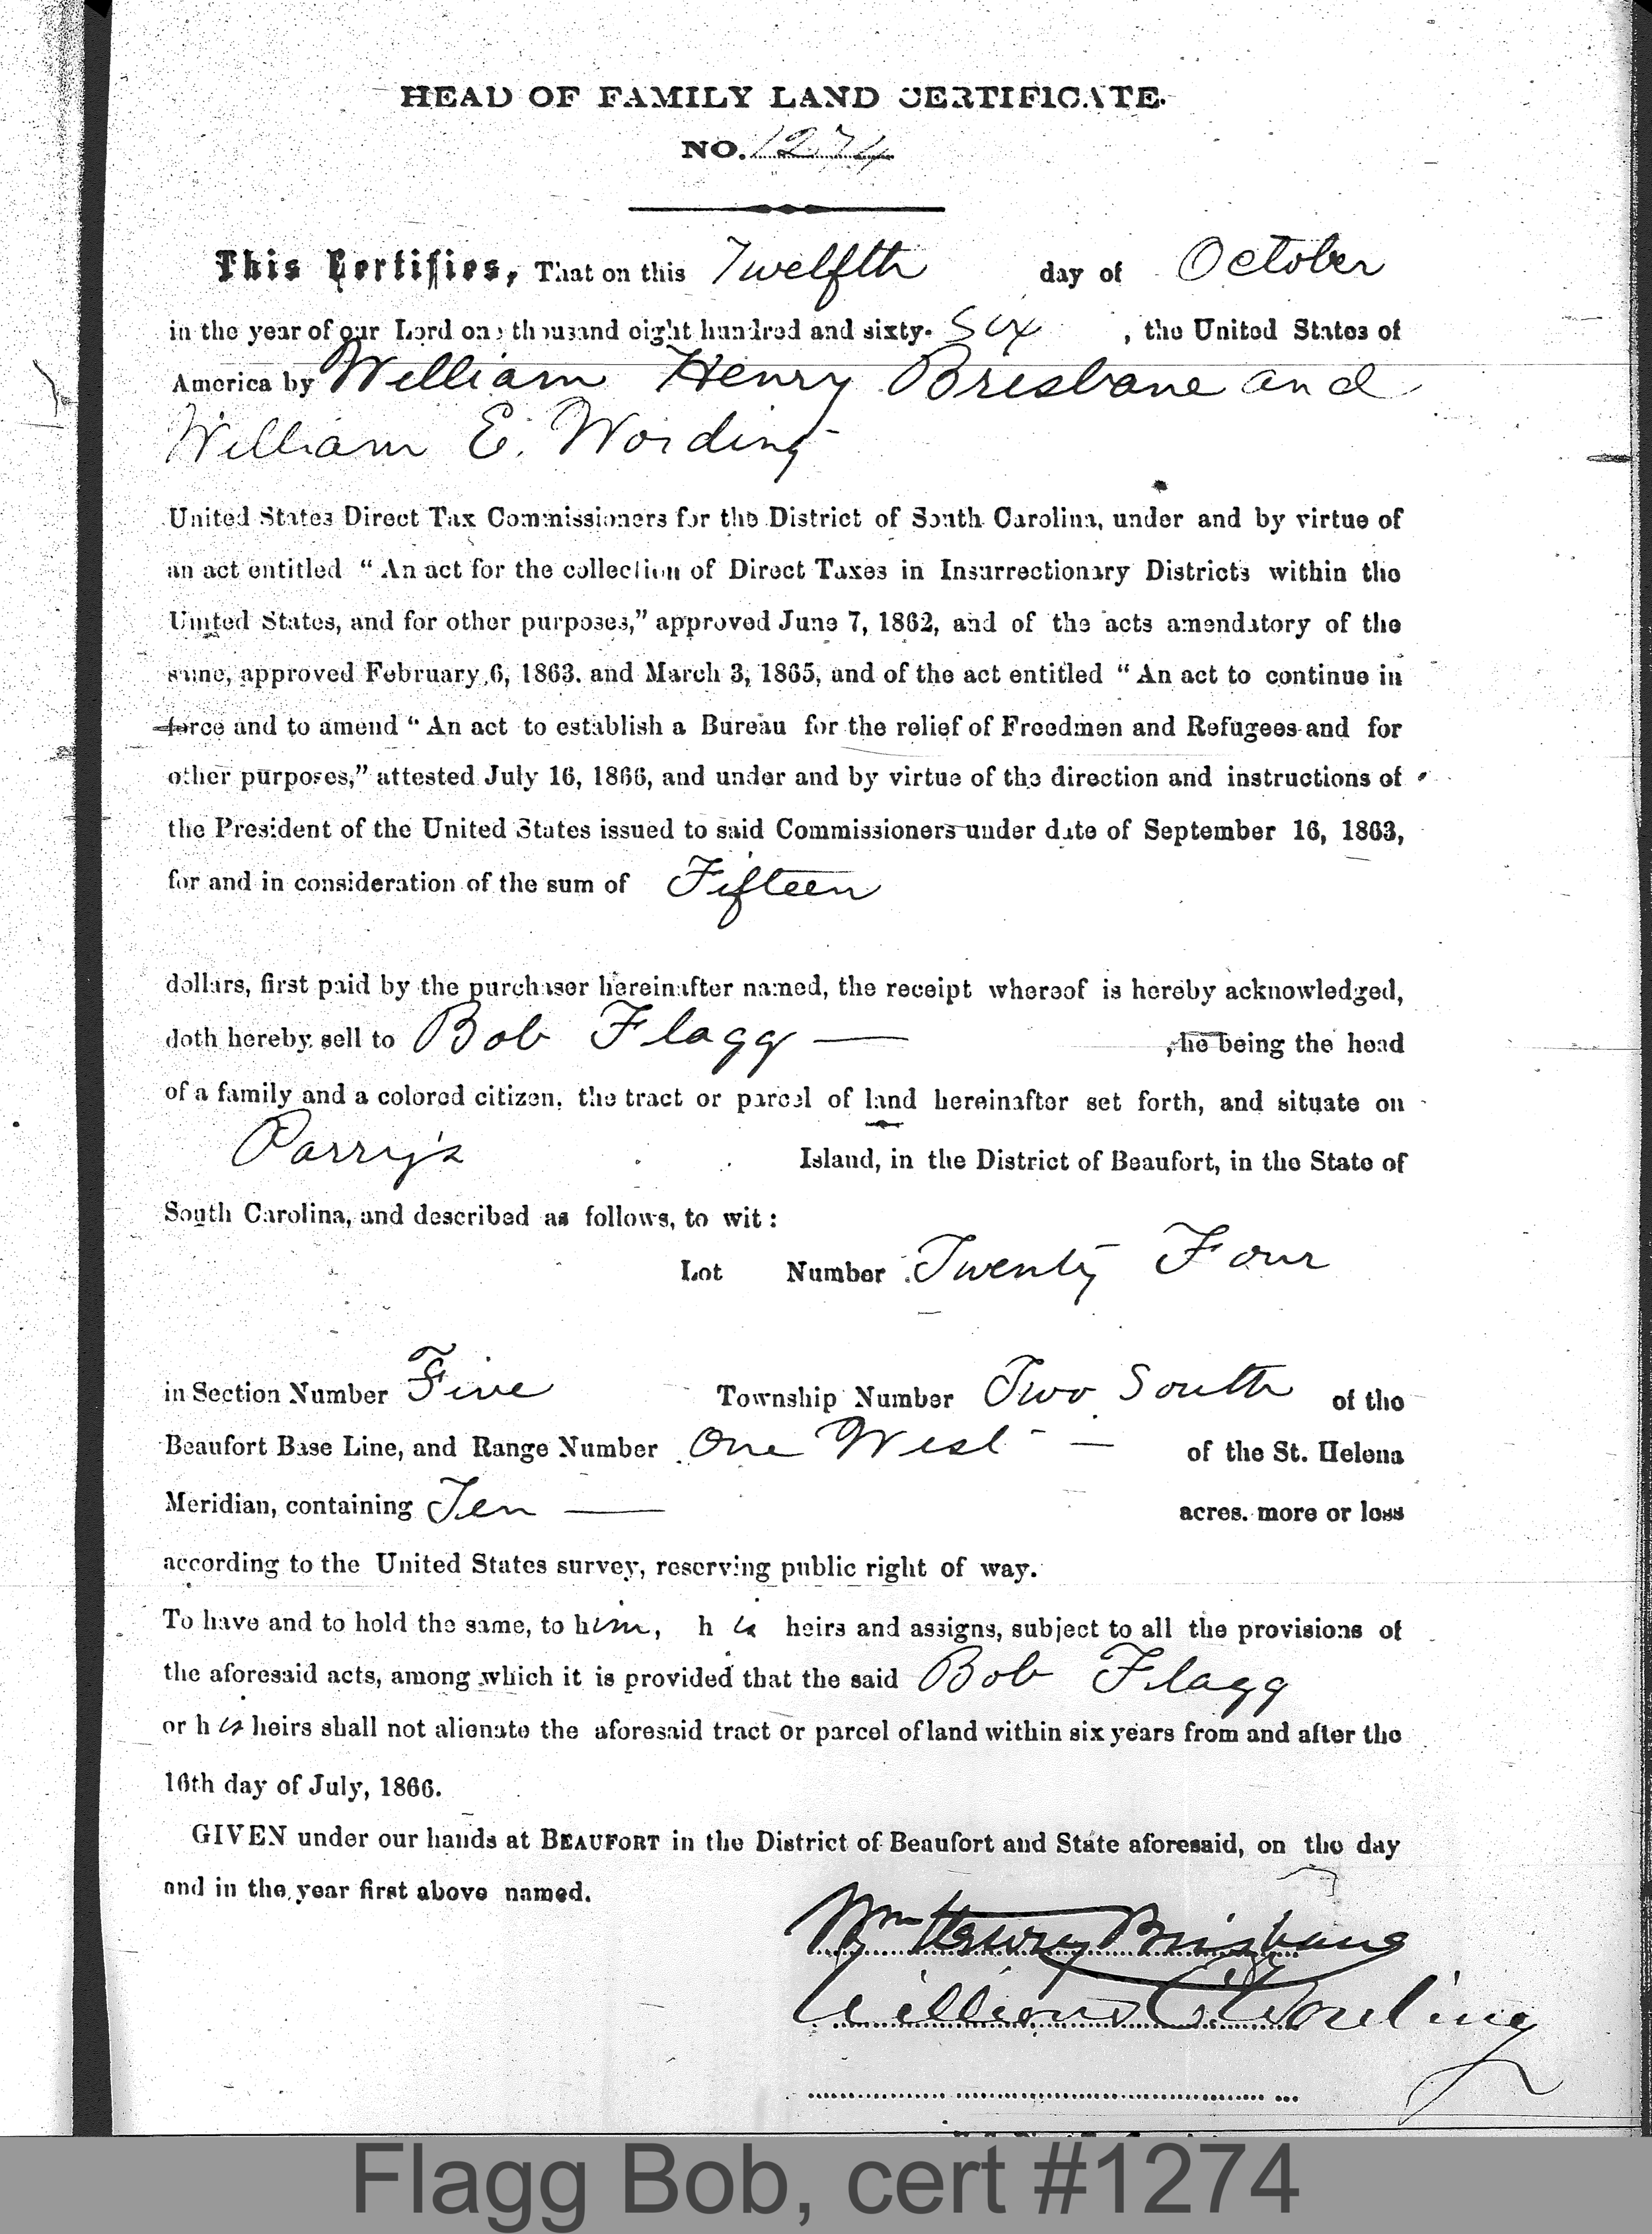 HEAD OF FAMILY LAND CERTIFICATE.
NO. 1274
This Certifies, That on this Twelfth day of October
in the year of our Lord one thousand eight hundred and sixty- Six , the United States of
America by William Henry Brisbane and
William E. Wording
United States Direct Tax Commissioners for the District of South Carolina, under and by virtue of
an act entitled “ An act for the collection of Direct Taxes in Insurrectionary Districts within the
United States, and for other purposes,” approved June 7, 1862, and of the acts amendatory of the
same, approved February 6, 1863. and March 3, 1865, and of the act entitled “ An act to continue in
force and to amend “ An act to establish a Bureau for the relief of Freedmen and Refugees and for
other purposes,” attested July 16, 1866, and under and by virtue of the direction and instructions of
the President of the United States issued to said Commissioners under date of September 16, 1863,
for and in consideration of the sum of Fifteen
dollars, first paid by the purchaser hereinafter named, the receipt whereof is hereby acknowledged,
doth hereby sell to Bob Flagg — , he being the head
of a family and a colored citizen, the tract or parcel of land hereinafter set forth, and situate on
Parry's Island, in the District of Beaufort, in the State of
South Carolina, and described as follows, to wit :
Lot Number Twenty Four
in Section Number Five Township Number Two South of the
Beaufort Base Line, and Range Number One West — of the St. Helena
Meridian, containing Ten — acres. more or less
according to the United States survey, reserving public right of way.
To have and to hold the same, to him, his heirs and assigns, subject to all the provisions of
the aforesaid acts, among which it is provided that the said Bob Flagg
or his heirs shall not alienate the aforesaid tract or parcel of land within six years from and after the
16th day of July, 1866.
GIVEN under our hands at BEAUFORT in the District of Beaufort and State aforesaid, on the day
and in the year first above named.
Wm Henry Brisbane
William E. Wording
Flagg Bob, cert #1274